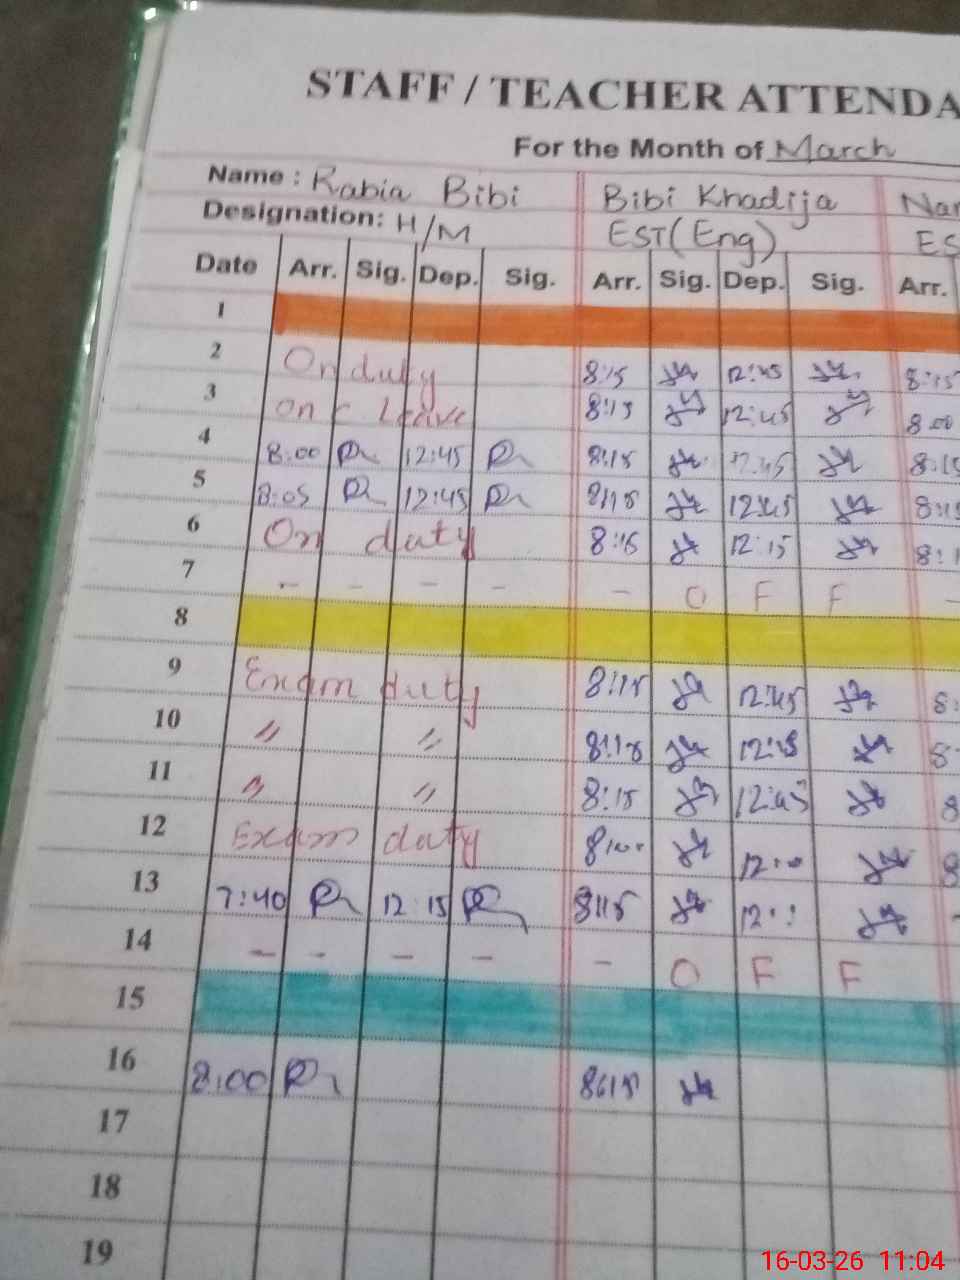 STAFF / TEACHER ATTENDA
For the Month of March
Name : Rabia Bibi Bibi Khadija Nar
Designation: H/M EST(Eng) ES
Date Arr. Sig. Dep. Sig. Arr. Sig. Dep. Sig. Arr.
1
2 On duty 8:15 12:45 8:15
3 On C leave 8:15 12:45 8:00
4 8:00 12:45 8:15 12:45 8:15
5 8:05 12:45 8:15 12:45
6 On duty 8:15 12:15
7 - - - - - O F F -
8
9 Exam duty 8:15 12:45 8:
10 〃 〃 8:15 12:45
11 〃 〃 8:15 12:45 8
12 Exam duty 8:00 12:00 8
13 7:40 12:15 8:15
14 - - - - - O F F
15
16 8:00 8:15
17
18
19
16-03-26 11:04